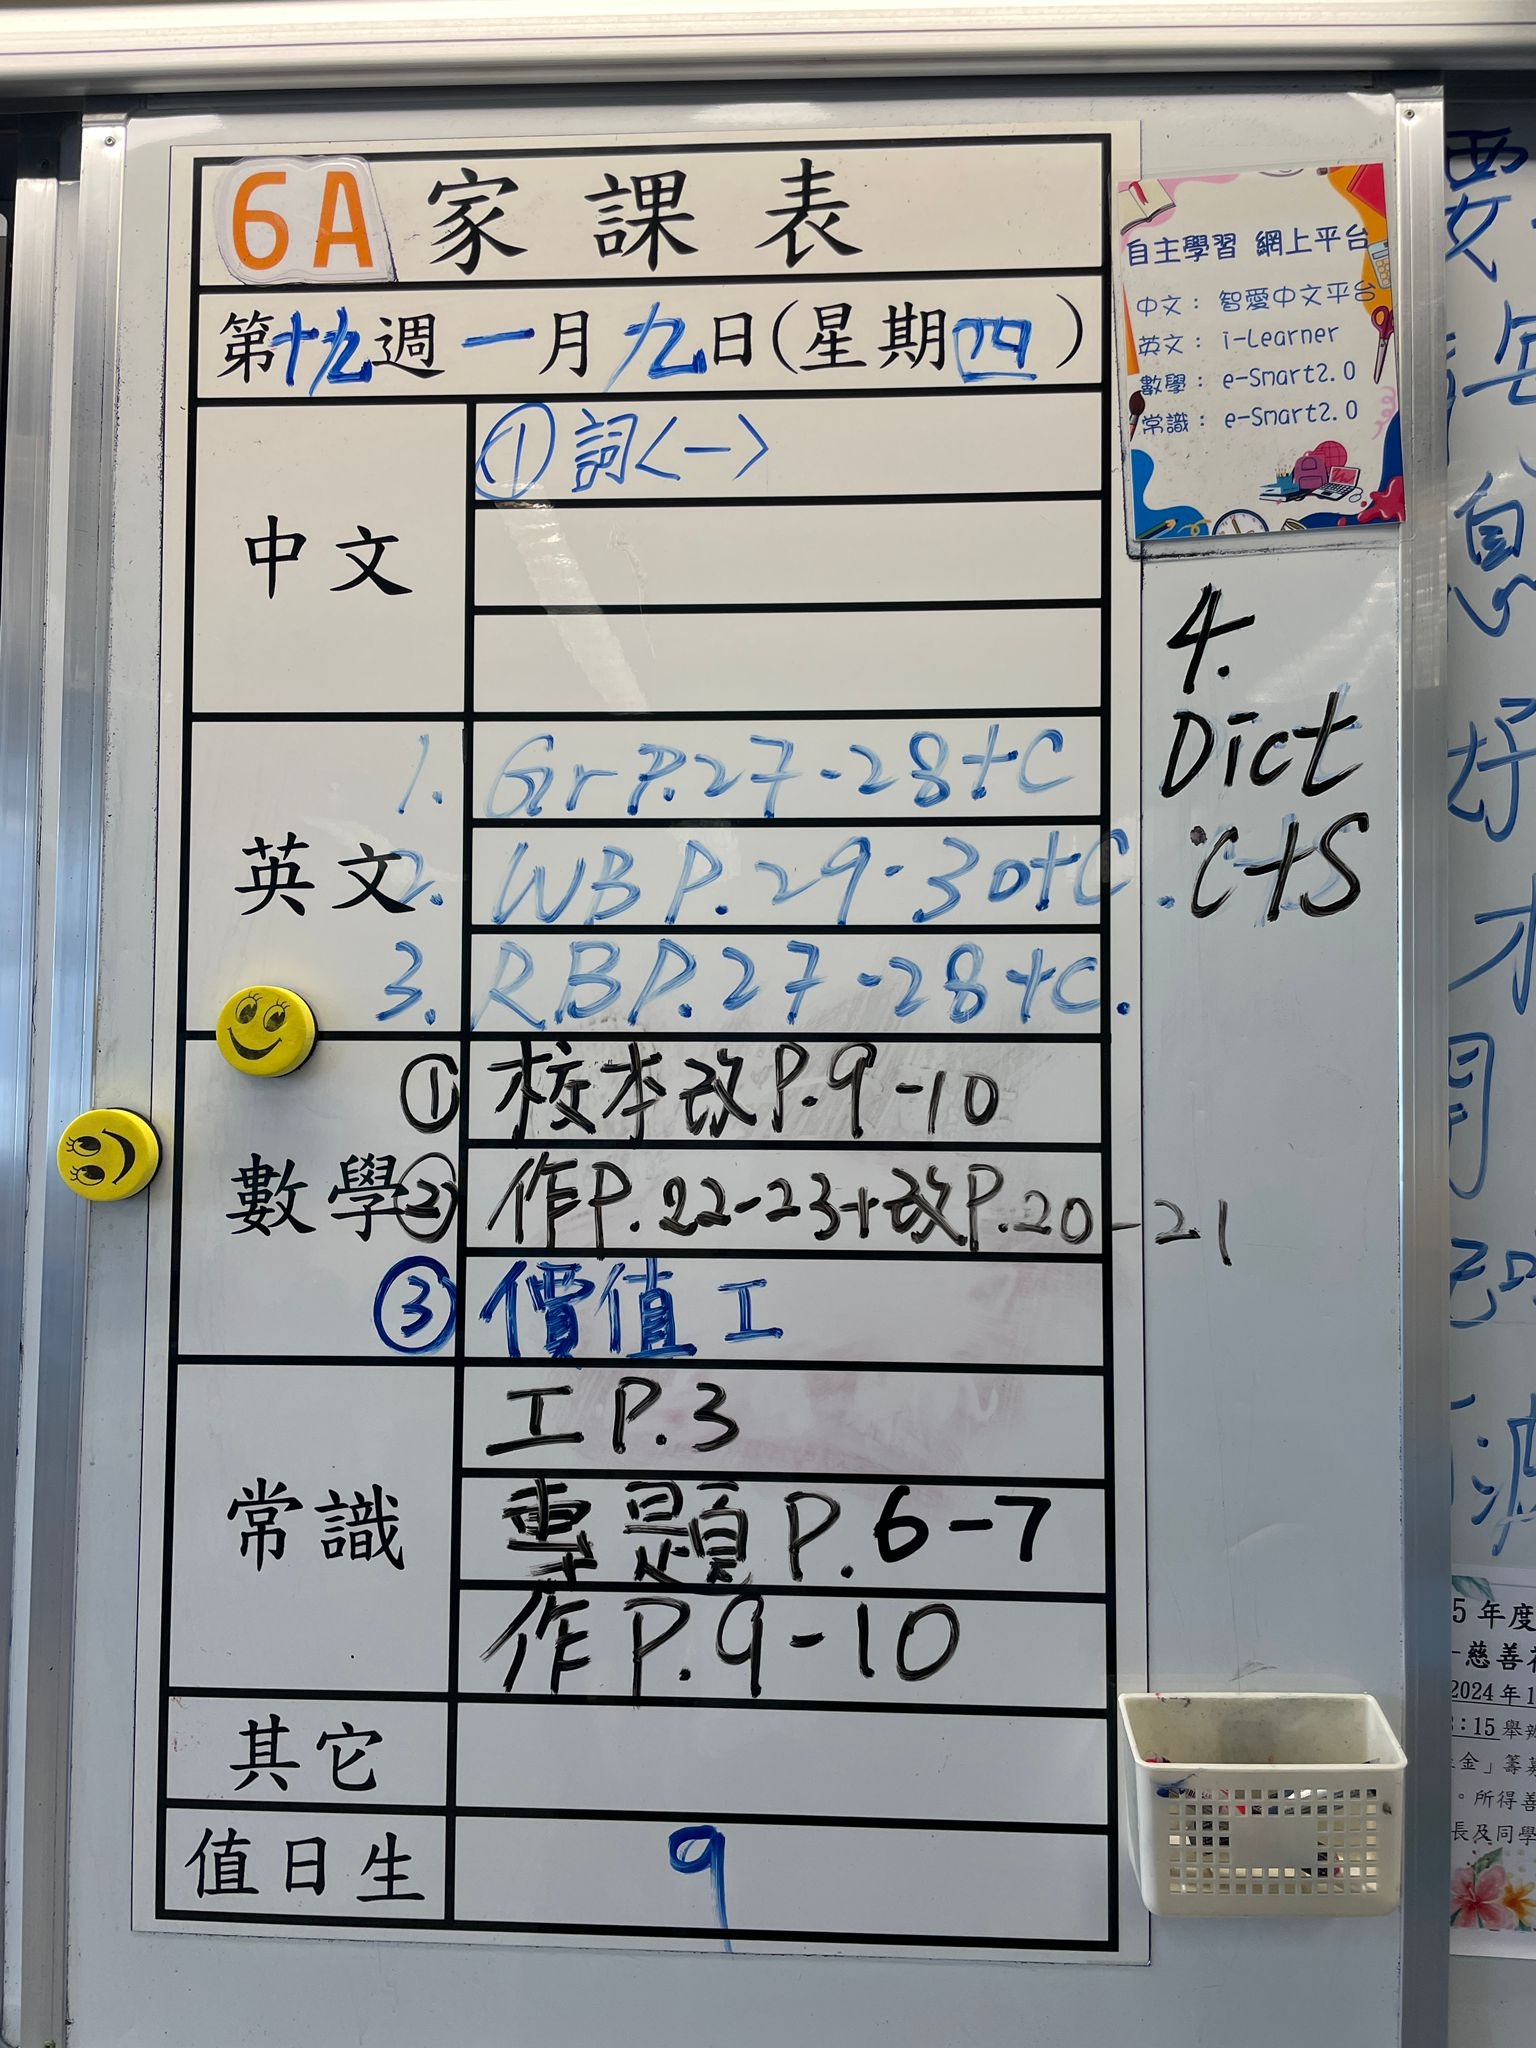 6A 家課表
第十九週 一月九日(星期四)
中文
①詞〈一〉
英文
1. Gr P.27-28+C
2. WB P.29-30+C.
3. RB P.27-28+C.
4.
Dict
C+S
數學
① 校本改P.9-10
② 作P.22-23+改P.20-21
③ 價值工
常識
工P.3
專題P.6-7
作P.9-10
其它
值日生
9
自主學習 網上平台
中文： 智愛中文平台
英文： i-Learner
數學： e-Smart2.0
常識： e-Smart2.0
要
息
好
5 年度
慈善
2024年1
:15 舉
金」籌募
。所得善
長及同學